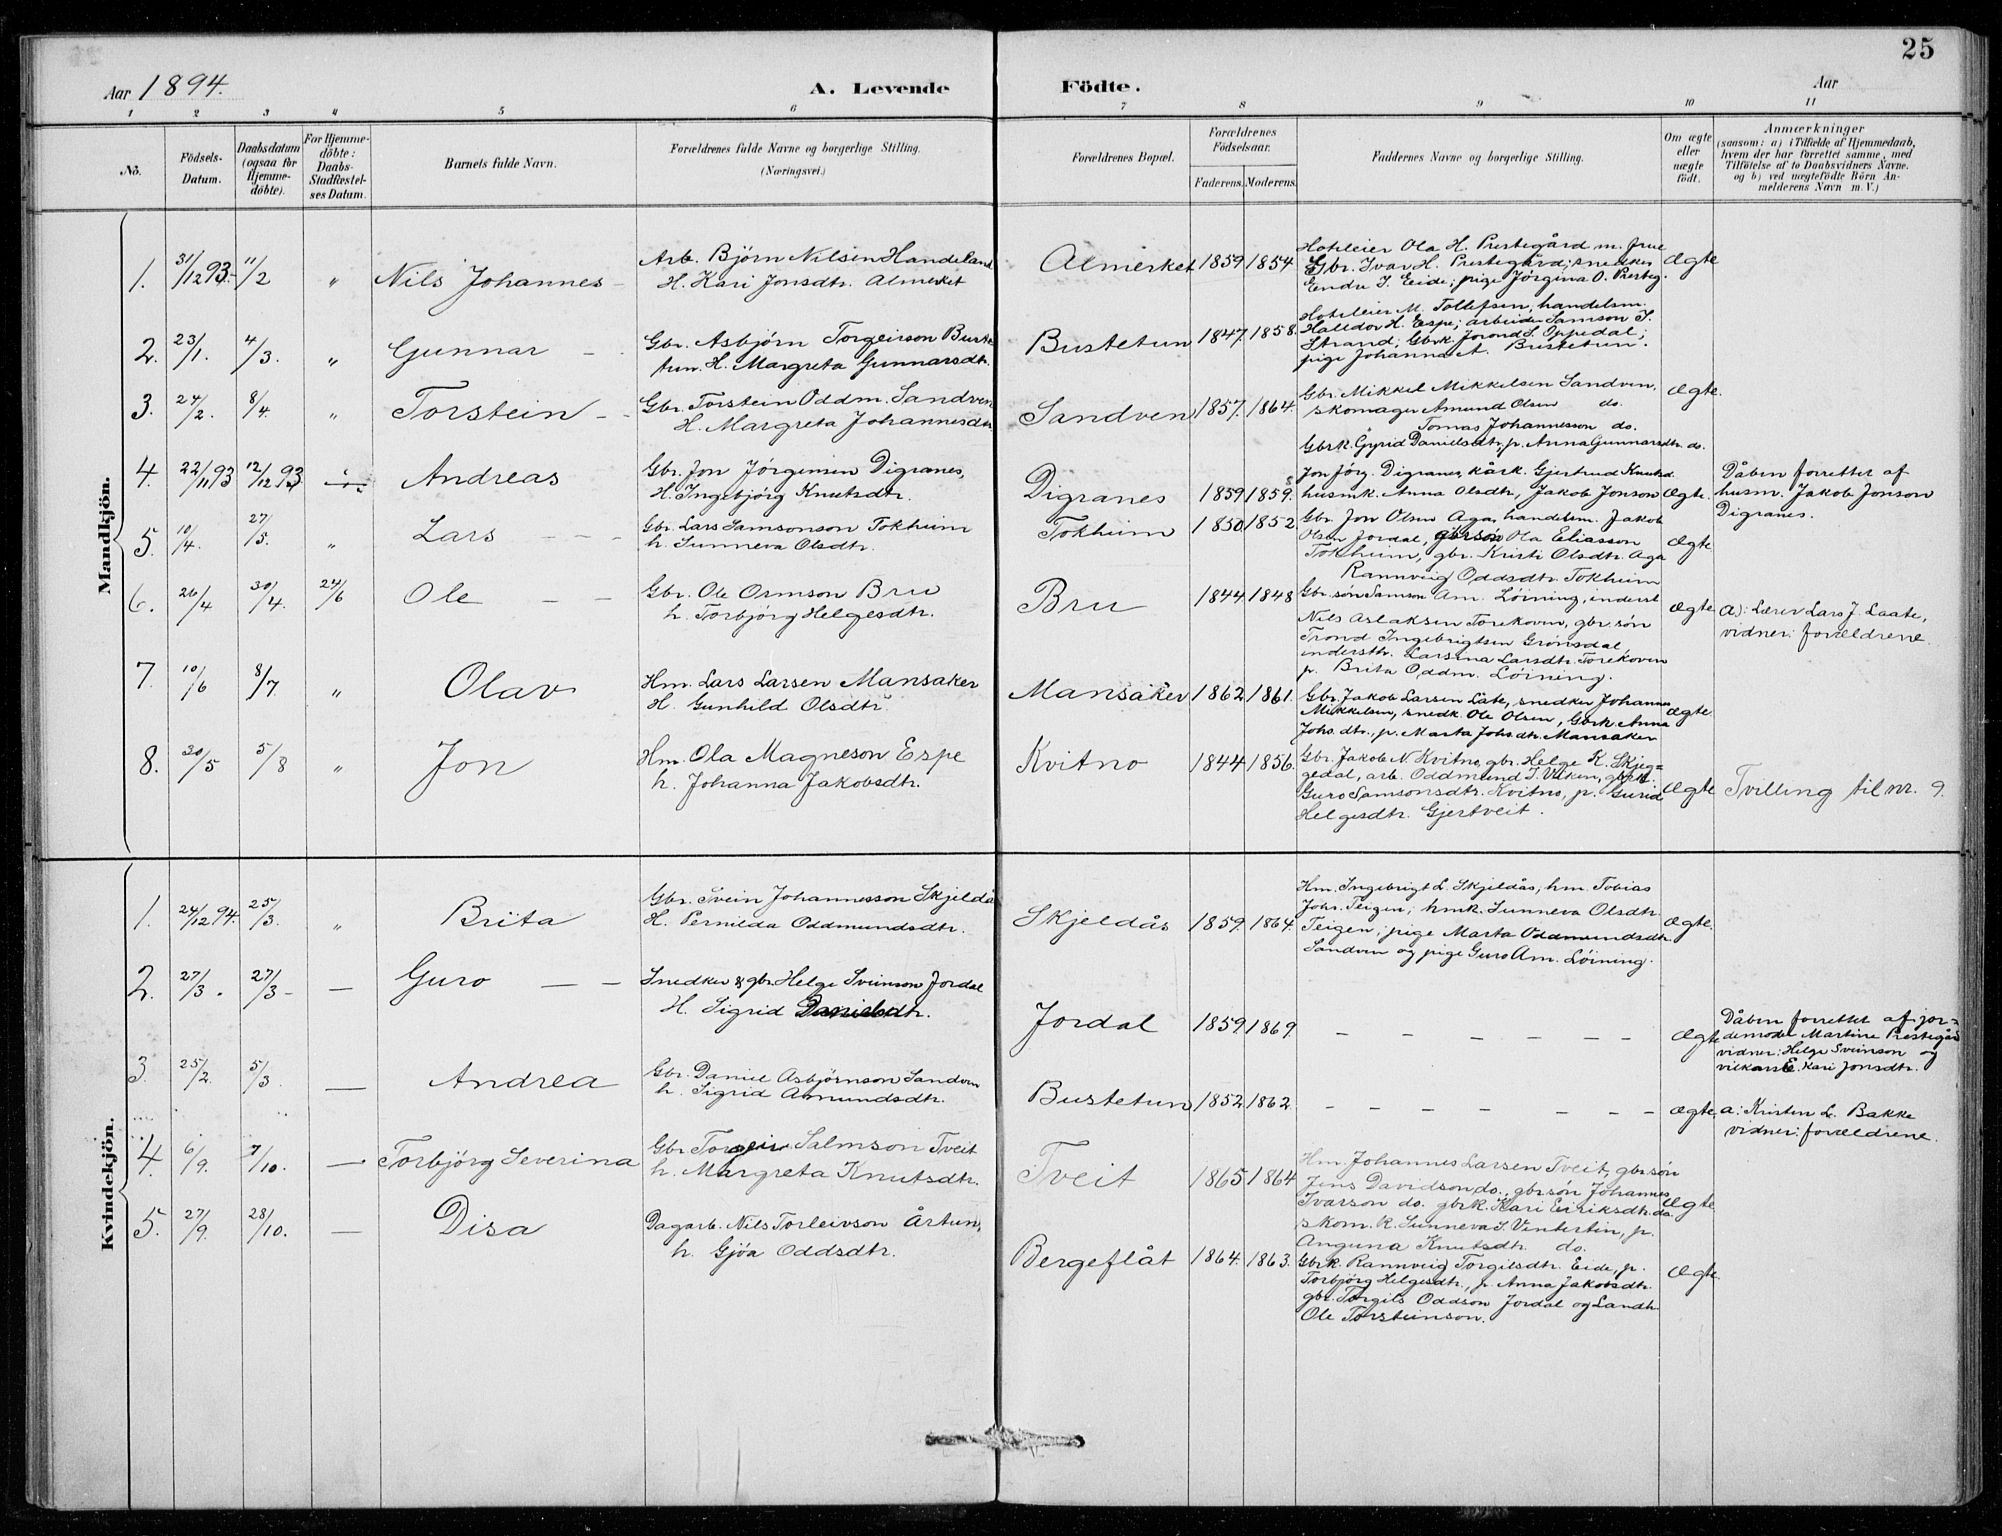 25
Aar 1894. A. Levende Födte. Aar
1 2 3 4 5 6 7 8 9 10 11
No.
Födsels-Datum.
Daabsdatum (ogsaa for Hjemme-döbte).
For Hjemme-döbte: Daabs-Stadfæstel-ses Datum.
Barnets fulde Navn.
Forældrenes fulde Navne og borgerlige Stilling.
(Næringsvei.)
Forældrenes Bopæl.
Forældrenes Födselsaar.
Faderens. Moderens.
Faddernes Navne og borgerlige Stilling.
Om ægte eller uægte födt.
Anmærkninger
(saasom: a) i Tilfælde af Hjemmedaab,
hvem der har forrettet samme, med
Tilföielse af to Daabsvidners Navne.
og b) ved uægtefödte Börn An-
melderens Navn m. V.)
Mandkjön.
1. 31/12 93. 11/2 " Nils Johannes - Arb. Björn Nilsen Handeland
H. Kari Jonsdtr. Almerket
Almerket 1859 1854
Hoteleier Ola H. Prestegård m. frue
Gbr. Ivar H. Prestegård; snedker
Endre I. Eide; pige Jörgina O. Presteg.
Ægte
2. 23/1. 4/3. " Gunnar - - Gbr. Asbjörn Torgeirson Buste
tun. H. Margreta Gunnarsdtr.
Bustetun 1847. 1858.
Hoteleier M. Tollefsen, handelsm.
Halldor H. Espe; arbeider Samson I.
Strand; Gbrk. Jorond L. Oppedal;
pige Johanna A. Bustetun.
3. 24/2. 8/4 " Torstein - - Gbr. Torstein Oddm. Sandven
H. Margreta Johannesdtr
Sandven 1857. 1864.
Gbr. Mikkel Mikkelsen Sandven,
skomager Amund Olsen do.
Tomas Johannesson do.
Gbrk. Gyrid Danielsdtr, p. Anna Gunnarsdtr. do.
Ægte.
4. 22/11 93 12/12 93 Andreas Gbr. Jon Jörgensen Digranes,
H. Ingebjörg Knutsdtr.
Digranes 1859 1859.
Jon Jörg. Digranes, kårk. Gjertrud Knutsd.
husmk. Anna Olsdtr, Jakob Jonson
Ægte.
Dåben forrettet af
husm. Jakob Jonson
Digranes.
5. 10/4. 27/5. " Lars - - - Gbr. Lars Samsonson Tokheim
h. Sunneva Olsdtr.
Tokheim 1850 1852
Gbr. Jon Olsen Aga, handelsm. Jakob
Olsen Jordal, Ola Eliasson
Tokheim, gbr. Kristi Olsdtr. Aga
Rannveig Oddsdtr. Tokheim
Ægte.
6. 26/4 30/4. 24/6 Ole - - Gbr. Ole Ormson Bru
h. Torbjörg Helgesdtr.
Bru 1844 1848
Gbr. sön Samson Am. Löining, inderst
Nils Aslaksen Torekoven, gbr. sön
Trond Ingebrigtsen Grönsdal,
inderstk. Larsina Larsdtr. Torekoven
p. Brita Oddm. Löining.
Ægte
a): Lærer Lars J. Laate,
vidner: forældrene.
7. 10/6 8/7 " Olav Hm. Lars Larsen Mansåker
H. Gunhild Olsdtr.
Mansåker 1862 1861.
Gbr. Jakob Larsen Låte, snedker Johannes
Mikkelsen, snedk. Ole Olsen, Gbrk. Anna
Johs.dtr., p. Marta Johsdtr. Mansåker
Ægte.
8. 30/5 5/8 " Jon Hm. Ola Magneson Espe
h. Johanna Jakobsdtr.
Kvitno 1844 1856.
Gbr. Jakob N. Kvitno, gbr. Helge K. Skjeg=
gedal, arb. Oddmund T. Viken, gbrk.
Guro Samsonsdtr. Kvitno, p. Gurid
Helgesdtr. Gjertveit.
Ægte
Tvilling til nr. 9.
Kvindekjön.
1. 24/12 94. 25/3. " Brita Gbr. Svein Johannesson Skjeldås
H. Pernilda Oddmundsdtr.
Skjeldås 1859. 1864.
Hm. Ingebrigt L. Skjeldås, hm. Tobias
Johs. Teigen; hmk. Sunneva Olsdtr
Teigen; pige Marta Oddmundsdtr.
Sandven og pige Guro Am. Löining.
Ægte.
2. 27/3. 27/3 - — Guro - - Snedker & gbr. Helge Sveinson Jordal
H. Sigrid Danielsdtr.
Jordal 1859 1869 - - - - - -
Ægte
Dåben forrettet af jor-
demoder Martine Prestegård
vidner: Helge Sveinson og
Kari Jonsdtr.
3. 25/2. 5/3. — Andrea Gbr. Daniel Asbjörnson Sandven
h. Sigrid Amundsdtr.
Bustetun 1852 1862. - - - - - - -
Ægte.
a: Kristen L. Bakke
vidner: forældrene.
4. 6/9. 7/10. — Torbjörg Severina Gbr. Torgeir Salmson Tveit
h. Margreta Knutsdtr.
Tveit 1865 1864
Hm. Johannes Larsen Tveit, gbr. sön
Jens Davidson do., gbr. sön Johannes
Ivarson do. gbrk. Kari Eiriksdtr. do.
skom. k. Sunneva S. Vintertun, p.
Anguna Knutsdtr. do.
Ægte.
5. 27/9. 28/10. — Disa Dagarb. Nils Torleivson Årtun,
h. Gjöa Oddsdtr.
Bergeflåt 1864. 1863.
Gbrk. Rannveig Torgilsdtr. Eide, p.
Torbjörg Helgesdtr., p. Anna Jakobsdtr.
gbr. Torgils Oddson Jordal og Landh.
Ole Torsteinson.
Ægte.